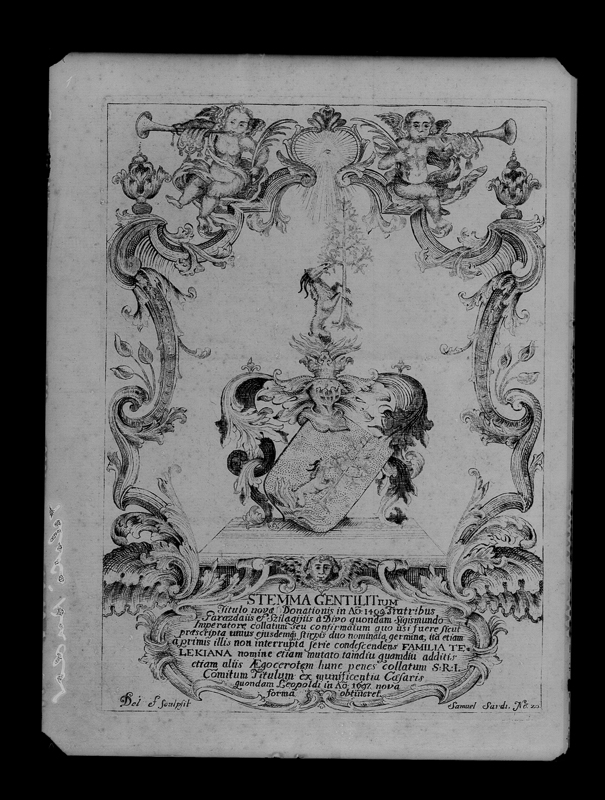 STEMMA GENTILITIUM
Titulo novæ Donationis in Aõ 1409 Fratribus
Garazdaiis et Szilagÿiis à Divo quondam Sigismundo
Imperatore collatum seu confirmatum quo usi fuere sicut
præscripta unius ejusdemqз stirpis duo nominata germina, ita etiam
a primis illis non interrupta serie condescendens FAMILIA TE⸗
LEKIANA nomine etiam mutato tamdiu quamdiu additis
etiam aliis Ægocerotem hunc penes collatum S·R·I·
Comitum Titulum ex munificentia Cæsaris
quondam Leopoldi in Aõ 1697. nova
forma obtineret.
Del et Sculpsit
Samuel Sardi.